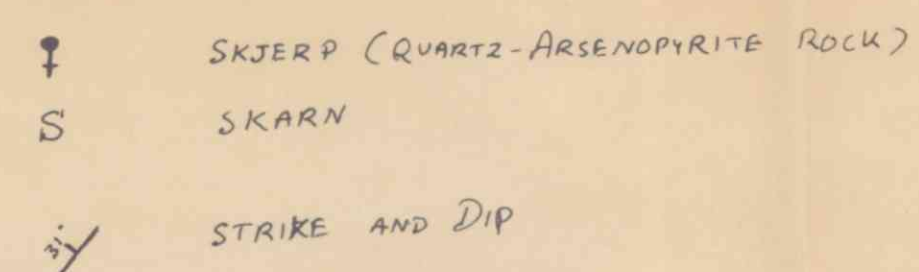 SKJERP (QUARTZ-ARSENOPYRITE ROCK)
S SKARN
31° STRIKE AND DIP